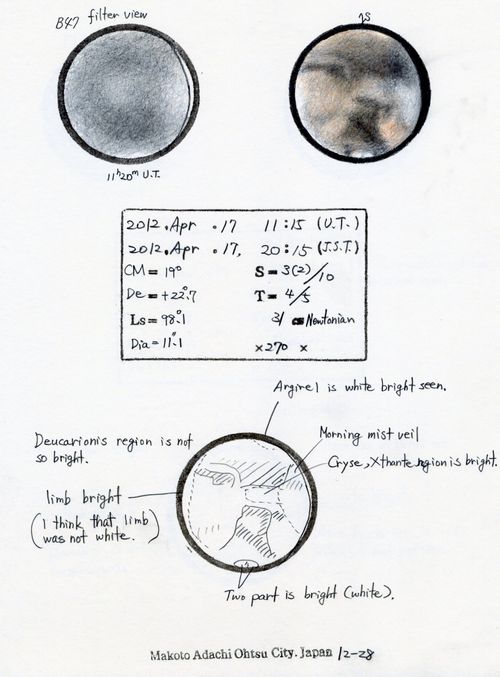 B47 filter view
11h20m U.T.
2012. Apr . 17 11:15 (U.T.)
2012. Apr . 17, 20:15 (J.S.T)
CM = 19° S = 3(2)/10
De = +22°.7 T = 4/5
Ls = 98°.1 31 cm Newtonian
Dia = 11".1 ×270 ×
Argire I is white bright seen.
Deucarionis region is not
so bright.
Morning mist veil
Cryse, Xthante region is bright.
limb bright
(I think that limb
was not white.)
Two part is bright (white).
Makoto Adachi Ohtsu City. Japan 12-28